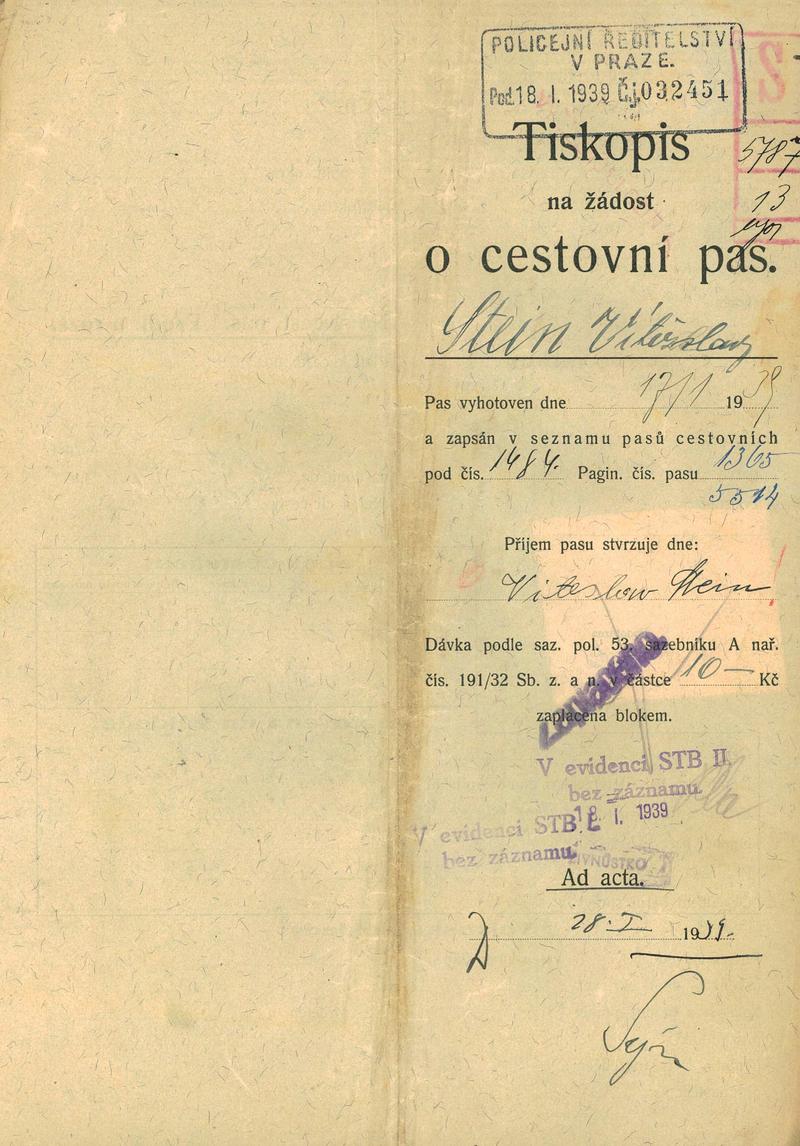 POLICEJNÍ ŘEDITELSTVÍ
V PRAZE.
Pod. 18. I. 1939 Č.j. 032451
Tiskopis
5787
na žádost
13
o cestovní pas.
Stein Vítězslav
Pas vyhotoven dne 17/1 1939
a zapsán v seznamu pasů cestovních
pod čís. 1484. Pagin. čís. pasu 1365
5514
Příjem pasu stvrzuje dne:
Vitezslav Stein
Dávka podle saz. pol. 53. sazebníku A nař.
čís. 191/32 Sb. z. a n. v částce 10— Kč
zaplacena blokem.
V evidenci STB II.
bez záznamu.
I. 1939
V evidenci STB
bez záznamu.
Ad acta.
28.I. 1939.